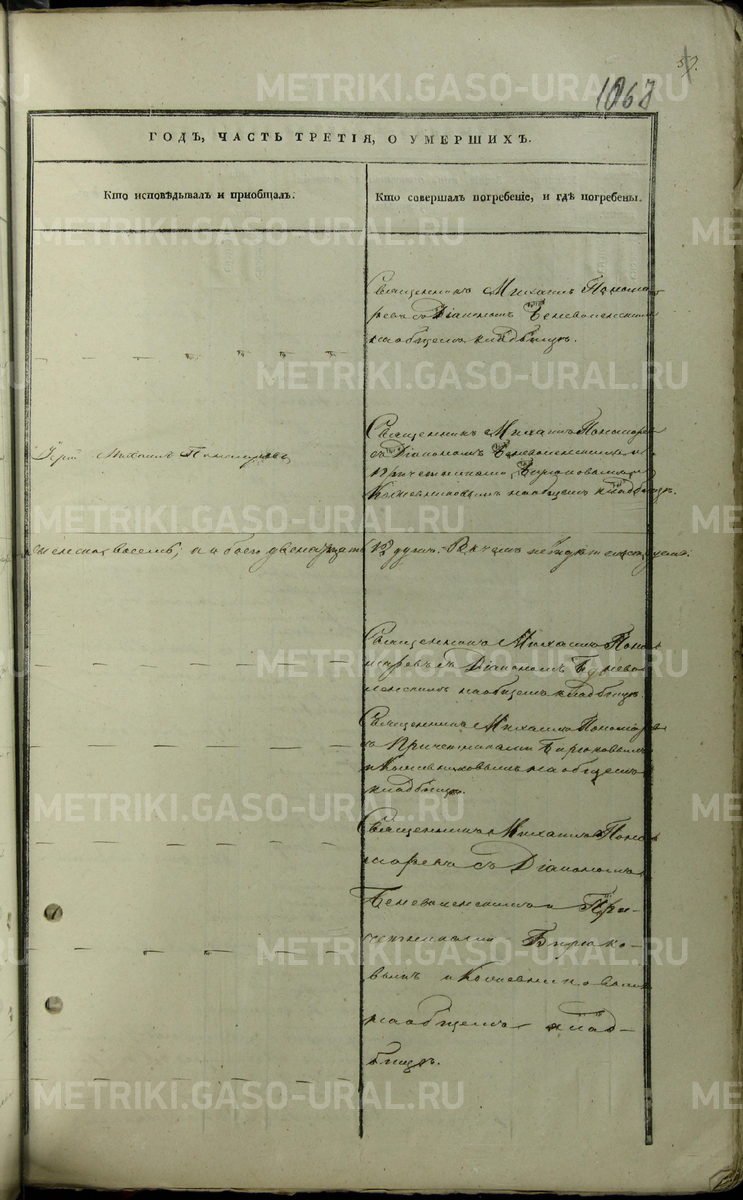 57.
1068
ГОДЪ, ЧАСТЬ ТРЕТІЯ, О УМЕРШИХЪ.
Кто исповѣдывалъ и пріобщалъ.
Кто совершалъ погребеніе, и гдѣ погребены.
Священникъ Михаилъ Пономо
ревъ съ Діакономъ Беневоленскимъ
на общемъ кладбищѣ.
Іерей Михаилъ Пономаревъ
Священникъ Михаилъ Пономарев
съ Діакономъ Беневоленскимъ и
Причетниками Бирюковымъ и
Кожевниковымъ на общемъ кладбищѣ.
женска восемь, а обоего двенадцать 12 душъ. В чемъ
Священникъ Михаилъ Поно
маревъ съ Діакономъ Бенево
ленскимъ на общемъ кладбищѣ.
Священникъ Михаилъ Пономарев
съ Причетниками Бирюковымъ
и Кожевниковымъ на общемъ
кладбищѣ.
Священникъ Михаилъ Поно
маревъ съ Діакономъ
Беневоленскимъ и При-
четниками Бирюко-
вымъ и Кожевниковымъ
на общемъ клад-
бищѣ.
METRIKI.GASO-URAL.RU